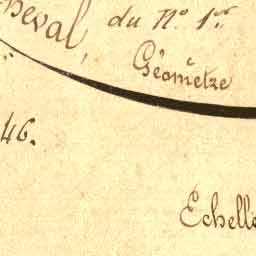 heval, du N.º 1.er
Géomètre
46.
Echelle